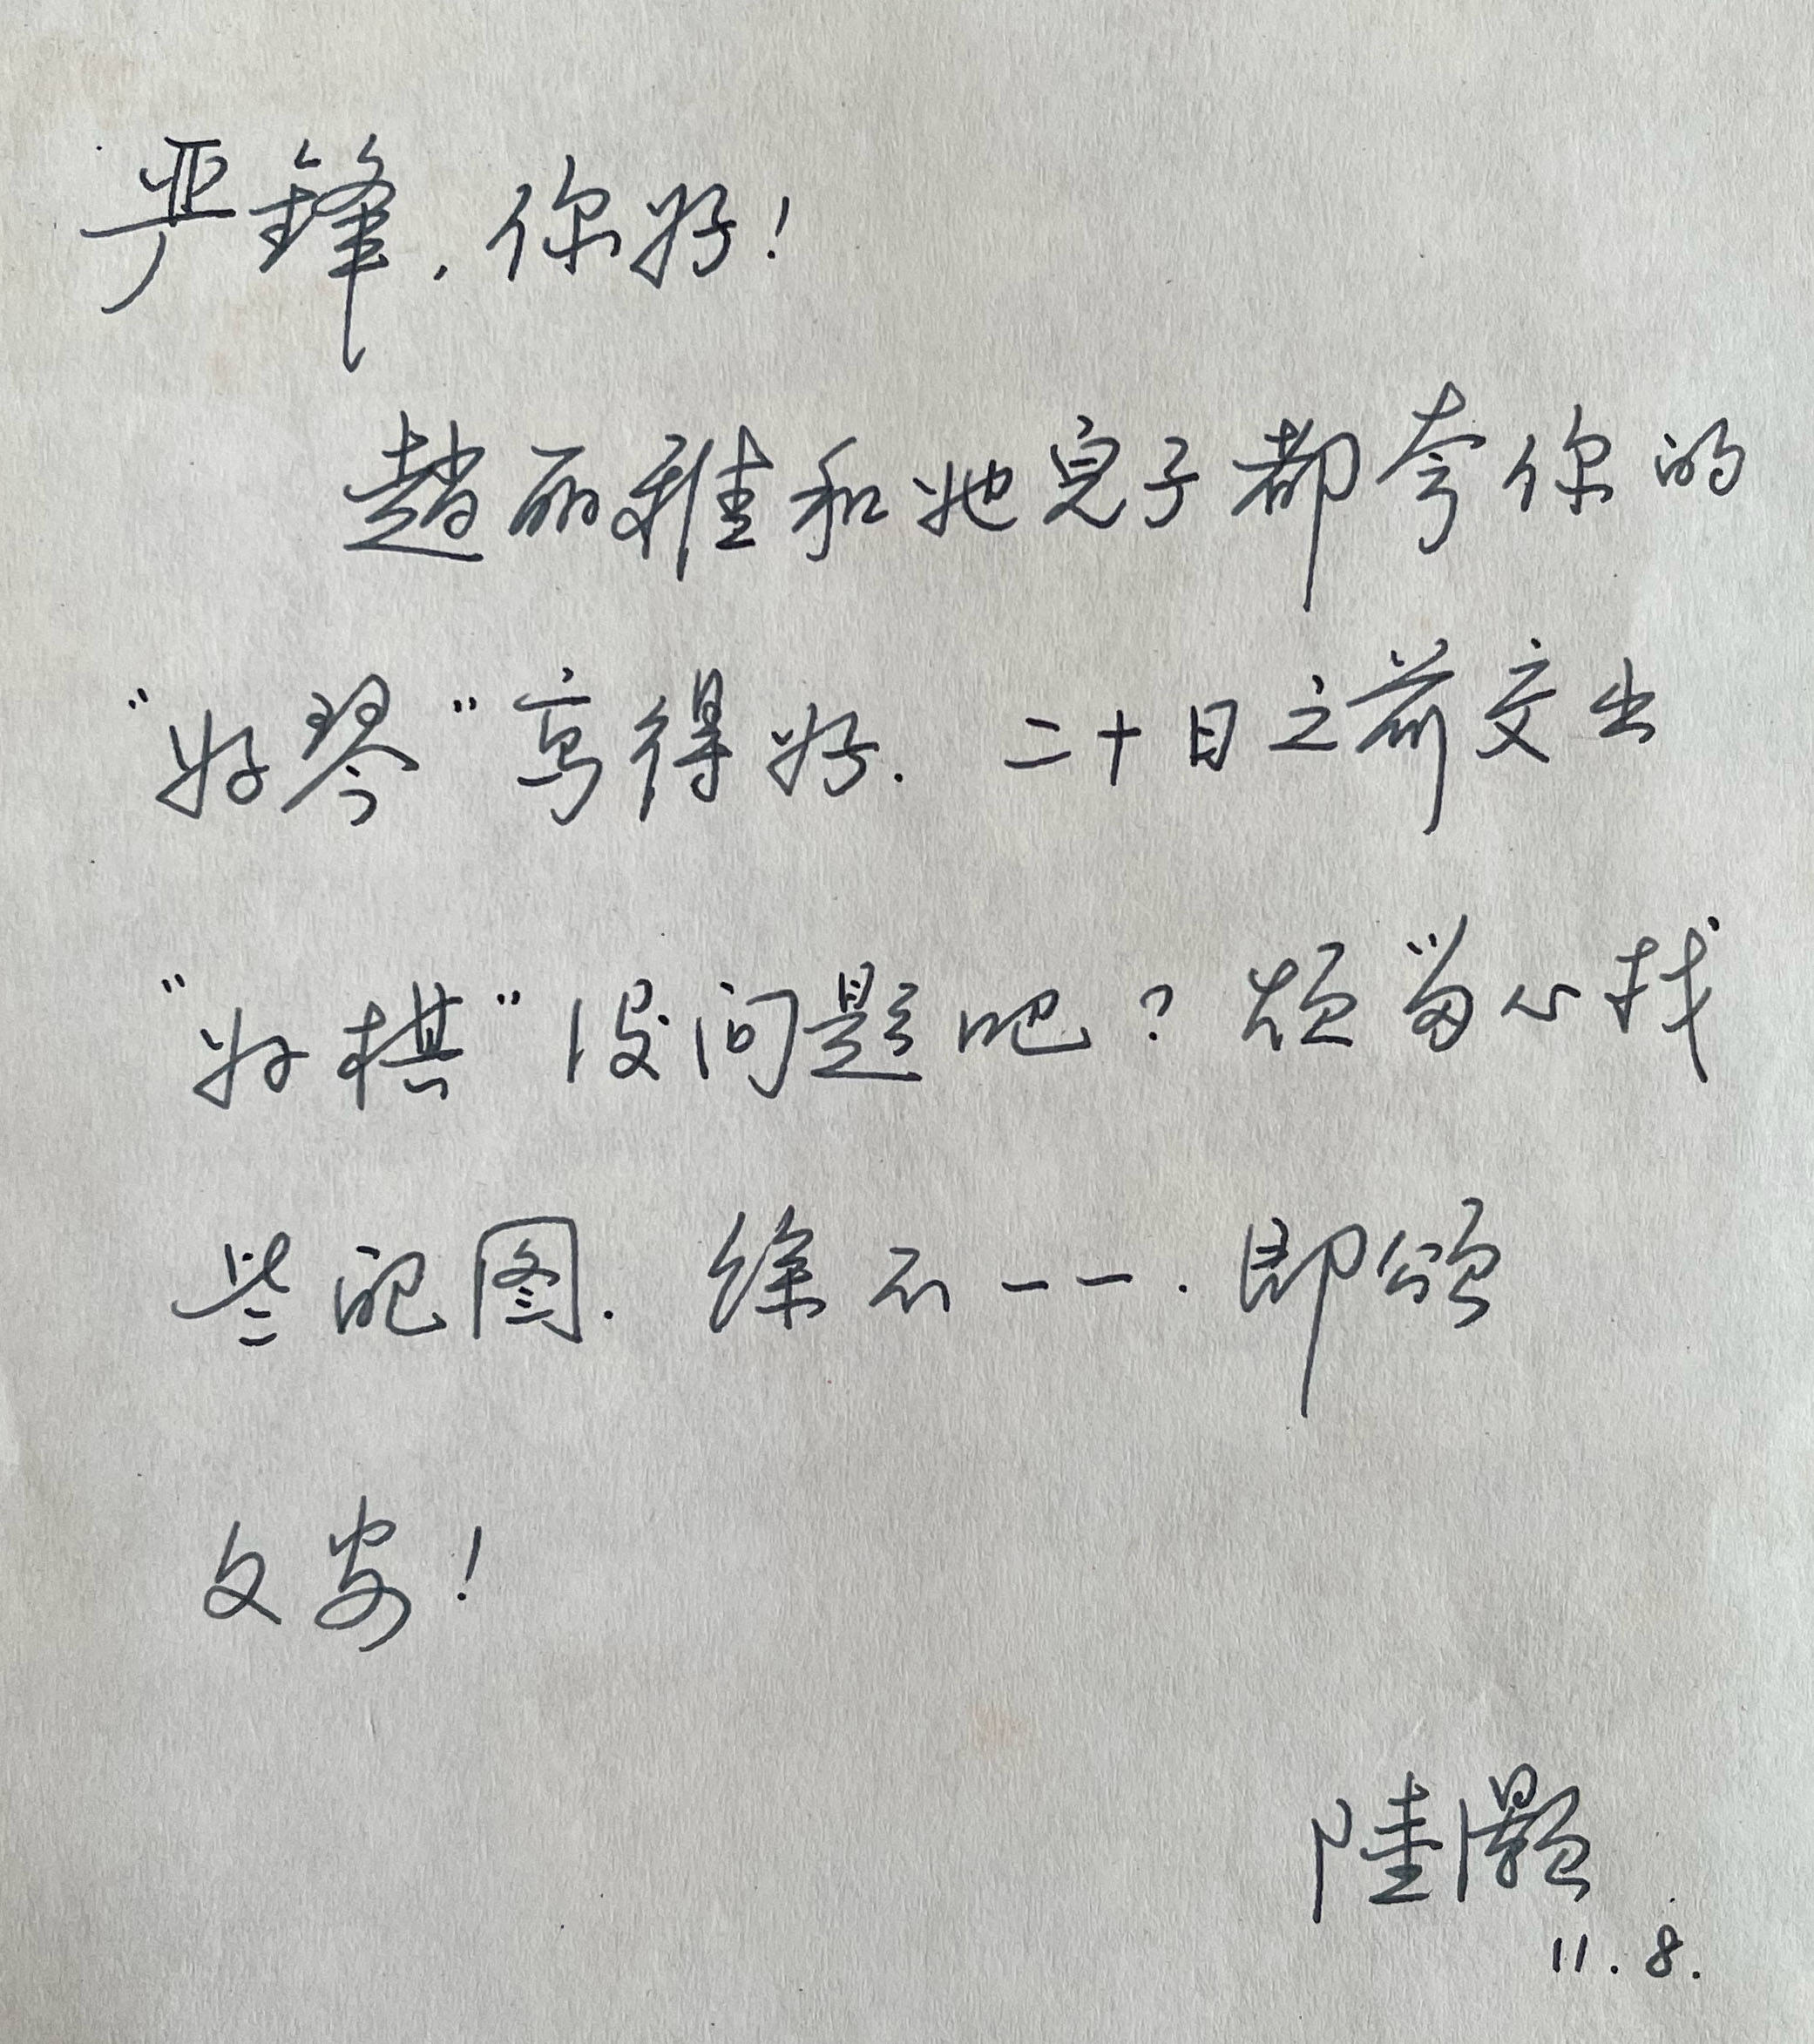 严锋，你好！
趙丽雅和她兒子都夸你的
“好琴”写得好．二十日之前交出
“好棋”没问题吧？烦留心找
些配图．馀不一一．即颂
文安！
陸灏
11.8.